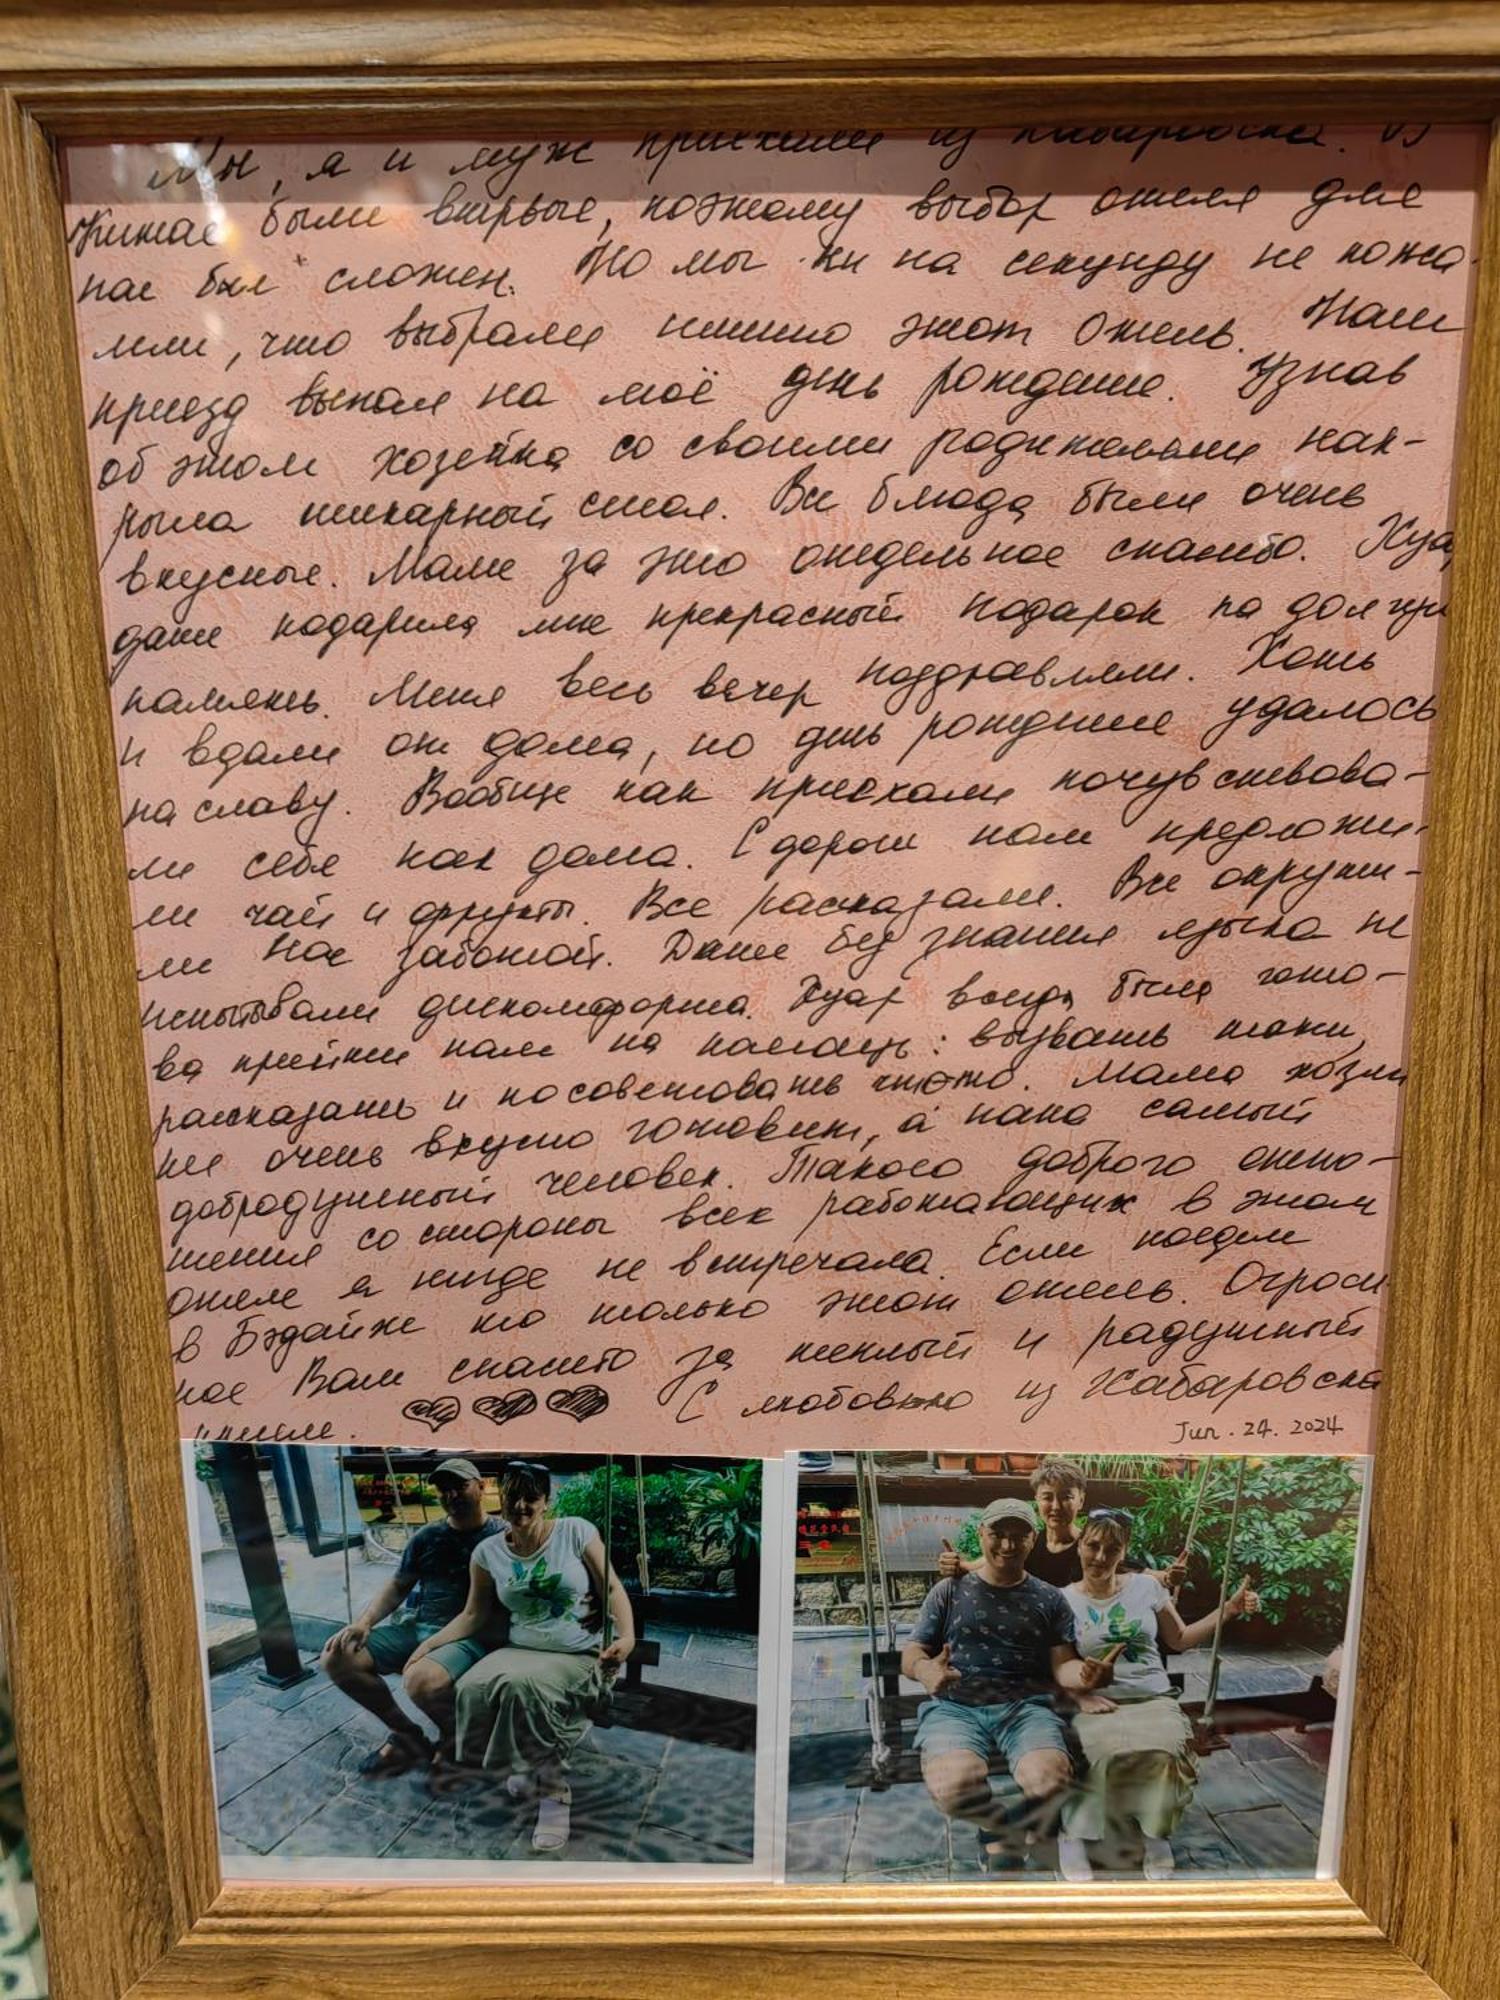 Мы, я и муж приехали из Хабаровска. В
Китае были впервые, поэтому выбор отеля для
нас был сложен. Но мы ни на секунду не пожа-
лели, что выбрали именно этот Отель. Наш
приезд выпал на моё день рождение. Узнав
об этом хозейка со своими родителями нак-
рыла шикарный стол. Все блюда были очень
вкусные. Маме за это отдельное спасибо. Хуа,
даже подарила мне прекрасный подарок на долгую
память. Меня весь вечер поздравляли. Хоть
и вдали от дома, но день рождение удалось
на славу. Вообще как приехали почувствова-
ли себя как дома. С дороги нам предложи-
ли чай и фрукты. Все рассказали. Все окружи-
ли нас заботой. Даже без знания языка не
испытывали дискомфорта. Хуа, всегда была гото-
ва прийти нам на помощь: вызвать такси,
рассказать и посоветовать что-то. Мама хозяй
ке очень вкусно готовит, а папа самый
добродушный человек. Такого доброго отно-
шения со стороны всех работающих в этом
отеле я нигде не встречала. Если поедем
в Бэдайхе то только этот отель. Огром
ное Вам спасибо за теплый и радушный
прием. С любовью из Хабаровска
Jun. 24. 2024